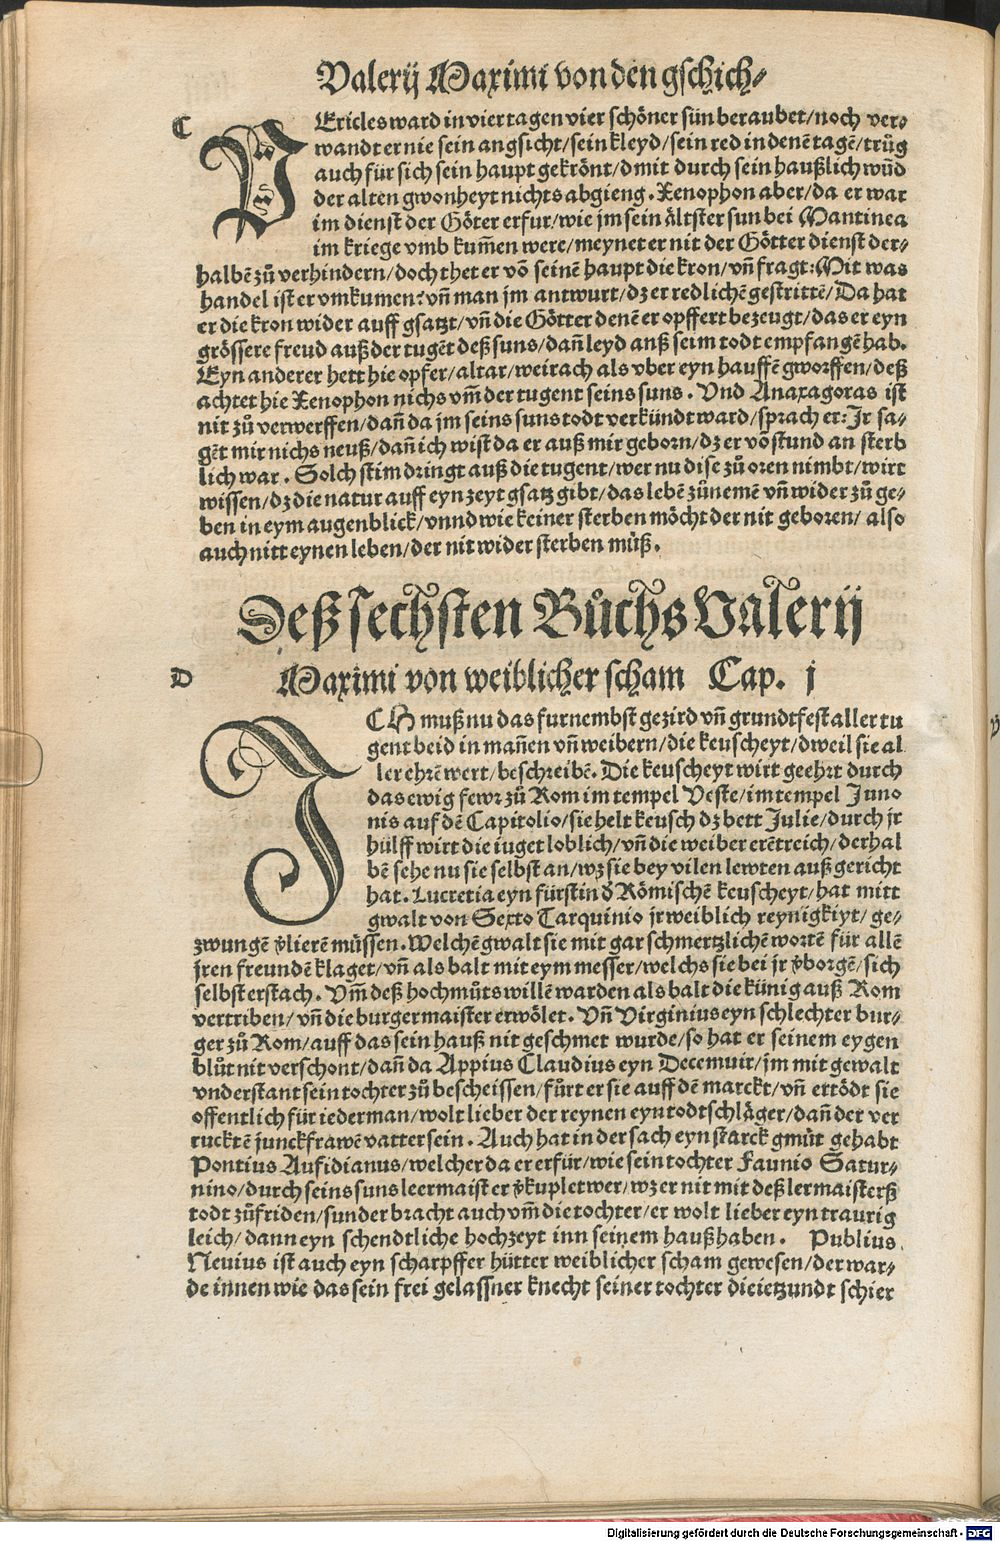 Valerij Maximi von den gschich⸗
C
PEricles ward in vier tagen vier schöner sün beraubet/noch ver⸗
wandt er nie sein angsicht/sein kleyd/sein red in denē tagē/trůg
auch für sich sein haupt gekrönt/dmit durch sein haußlich wūd
der alten gwonheyt nichts abgieng. Xenophon aber/da er war
im dienst der Göter erfur/wie jm sein ältster sun bei Mantinea
im kriege vmb kum̃en were/meynet er nit der Götter dienst der⸗
halbē zů verhindern/doch thet er vō seinē haupt die kron/vñ fragt:Mit was
handel ist er vmkumen?vñ man jm antwurt/dz er redlichē gestrittē/Da hat
er die kron wider auff gsatzt/vñ die Götter denē er opffert bezeugt/das er eyn
grössere freud auß der tugēt deß suns/dañ leyd anß seim todt empfangē hab.
Eyn anderer hett hie opfer/altar/weirach als vber eyn hauffē gworffen/deß
achtet hie Xenophon nichs vm̃ der tugent seins suns. Vnd Anaxagoras ist
nit zů verwerffen/dañ da jm seins suns todt verkündt ward/sprach er:Jr sa⸗
gēt mir nichs neuß/dañ ich wist da er auß mir geborn/dz er vō stund an sterb
lich war. Solch stim dringt auß die tugent/wer nu dise zů oren nimbt/wirt
wissen/dz die natur auff eyn zeyt gsatz gibt/das lebē zůnemē vñ wider zů ge⸗
ben in eym augenblick/vnnd wie keiner sterben möcht der nit geboren/ also
auch nitt eynen leben/der nit wider sterben můß.
Deß sechsten Bůchs Valerij
D
Maximi von weiblicher scham Cap. j
JCH muß nu das furnembst gezird vñ grundtfest aller tu
gent beid in mañen vñ weibern/die keuscheyt/dweil sie al
ler ehrē wert/beschreibē. Die keuscheyt wirt geehrt durch
das ewig fewr zů Rom im tempel Veste/im tempel Juno
nis auf dē Capitolio/sie helt keusch dz bett Julie/durch jr
hülff wirt die iuget loblich/vñ die weiber erētreich/derhal
bē sehe nu sie selbst an/wz sie bey vilen lewten auß gericht
hat. Lucretia eyn fürstin d̕ Römischē keuscheyt/hat mitt
gwalt von Sexto Tarquinio jr weiblich reynigkiyt/ ge⸗
zwungē v̕lierē müssen. Welchē gwalt sie mit gar schmertzlichē wortē für allē
jren freundē klaget/vñ als balt mit eym messer/welchs sie bei jr v̕borgē/sich
selbst erstach. Vm̃ deß hochmůts willē warden als balt die künig auß Rom
vertriben/vñ die burgermaister erwölet. Vñ Virginius eyn schlechter bur⸗
ger zů Rom/auff das sein hauß nit geschmet wurde/so hat er seinem eygen
blůt nit verschont/dañ da Appius Claudius eyn Decemuir/jm mit gewalt
vnderstant sein tochter zů bescheissen/fůrt er sie auff dē marckt/vñ ertödt sie
offentlich für iederman/wolt lieber der reynen eyn todtschläger/dañ der ver
rucktē junckfrawē vatter sein. Auch hat in der sach eyn starck gmüt gehabt
Pontius Aufidianus/welcher da er erfür/wie sein tochter Faunio Satur⸗
nino/durch seins suns leermaister v̕kuplet wer/wz er nit mit deß lermaisterß
todt zůfriden/sunder bracht auch vm̃ die tochter/er wolt lieber eyn traurig
leich/dann eyn schendtliche hochzeyt inn seinem hauß haben. Publius
Neuius ist auch eyn scharpffer hütter weiblicher scham gewesen/der war⸗
de innen wie das sein frei gelassner knecht seiner tochter die ietzundt schier
Digitalisierung gefördert durch die Deutsche Forschungsgemeinschaft - DFG